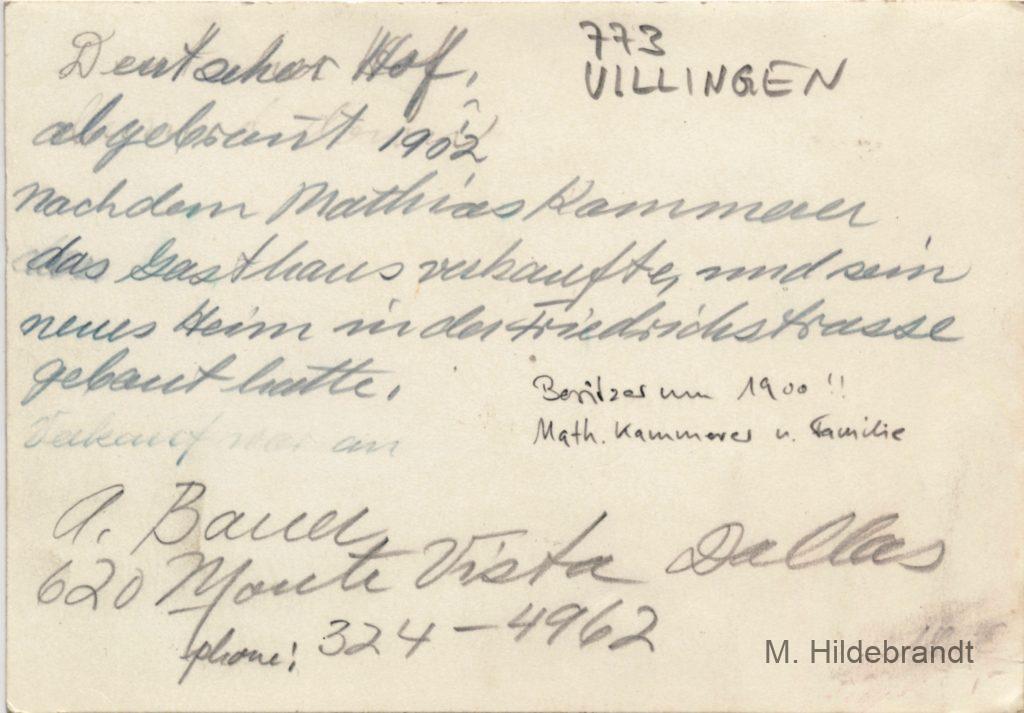 Deutscher Hof,
773
VILLINGEN
abgebrannt 1902
Nachdem Mathias Kammerer
das Gasthaus verkaufte, und sein
neues Heim in der Friedrichstrasse
gebaut hatte.
Besitzer um 1900!!
Math. Kammerer u. Familie
Verkauf war an
A. Bauer
620 Monte Vista Dallas
phone: 324-4962
M. Hildebrandt